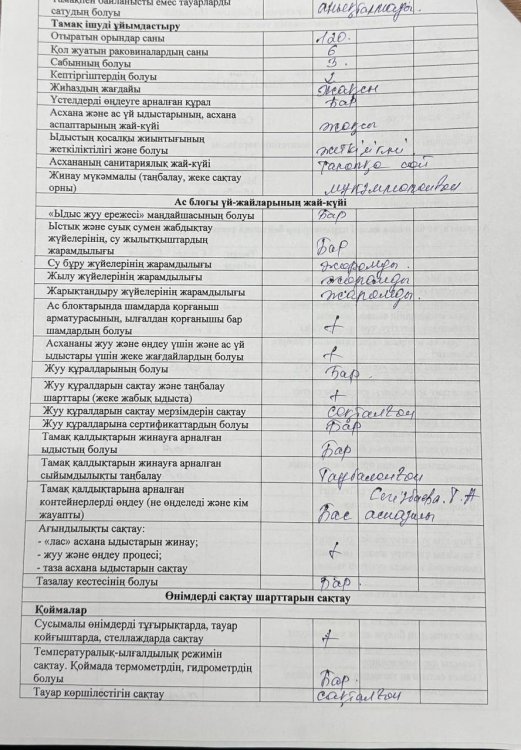 Тамақпен байланысты емес тауарларды
сатудың болуы анықталмады.
Тамақ ішуді ұйымдастыру
Отыратын орындар саны 120.
Қол жуатын раковиналардың саны 6
Сабынның болуы 3.
Кептіргіштердің болуы 2
Жиһаздың жағдайы жақсы
Үстелдерді өңдеуге арналған құрал Бар
Асхана және ас үй ыдыстарының, асхана
аспаптарының жай-күйі жақсы
Ыдыстың қосалқы жиынтығының
жеткіліктілігі және болуы жеткілікті
Асхананың санитариялық жай-күйі Талапқа сай
Жинау мүкәммалы (таңбалау, жеке сақтау
орны)
Ас блогы үй-жайларының жай-күйі
«Ыдыс жуу ережесі» маңдайшасының болуы Бар
Ыстық және суық сумен жабдықтау
жүйелерінің, су жылытқыштардың
жарамдылығы Бар
Су бұру жүйелерінің жарамдылығы жарамды.
Жылу жүйелерінің жарамдылығы жарамды
Жарықтандыру жүйелерінің жарамдылығы жарамды.
Ас блоктарында шамдарда қорғаныш
арматурасының, ылғалдан қорғанышы бар
шамдардың болуы +
Асхананы жуу және өңдеу үшін және ас үй
ыдыстары үшін жеке жағдайлардың болуы +
Жуу құралдарының болуы Бар.
Жуу құралдарын сақтау және таңбалау
шарттары (жеке жабық ыдыста) +
Жуу құралдарын сақтау мерзімдерін сақтау сақталған
Жуу құралдарына сертификаттардың болуы Бар
Тамақ қалдықтарын жинауға арналған
ыдыстың болуы Бар
Тамақ қалдықтарын жинауға арналған
сыйымдылықты таңбалау Таңбаланған
Тамақ қалдықтарына арналған
контейнерлерді өңдеу (не өңделеді және кім
жауапты) Бас аспазшы
Ағындылықты сақтау:
- «лас» асхана ыдыстарын жинау;
- жуу және өңдеу процесі; +
- таза асхана ыдыстарын сақтау
Тазалау кестесінің болуы Бар.
Өнімдерді сақтау шарттарын сақтау
Қоймалар
Сусымалы өнімдерді тұғырықтарда, тауар
қойғыштарда, стеллаждарда сақтау +
Температуралық-ылғалдылық режимін
сақтау. Қоймада термометрдің, гидрометрдің
болуы Бар.
Тауар көршілестігін сақтау сақталған